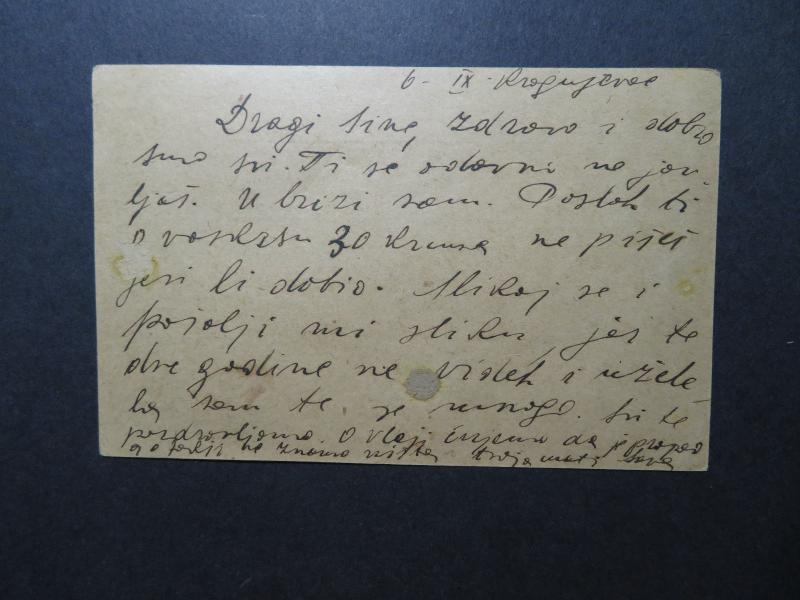 6 - IX - Kragujevac
Dragi sine, zdravo i dobro
smo svi. Ti se odavni ne jav
ljaš. U brizi sam. Poslah ti
o vaskrsu 30 kruna ne pišeš
jesi li dobio. Slikaj se i
pošalji mi sliku, jer te
dve godine ne videh i užele
la sam te se mnogo. Svi te
pozdravljamo. O Vlaji čujemo da je propao
a o ne znamo ništa tvoja mati